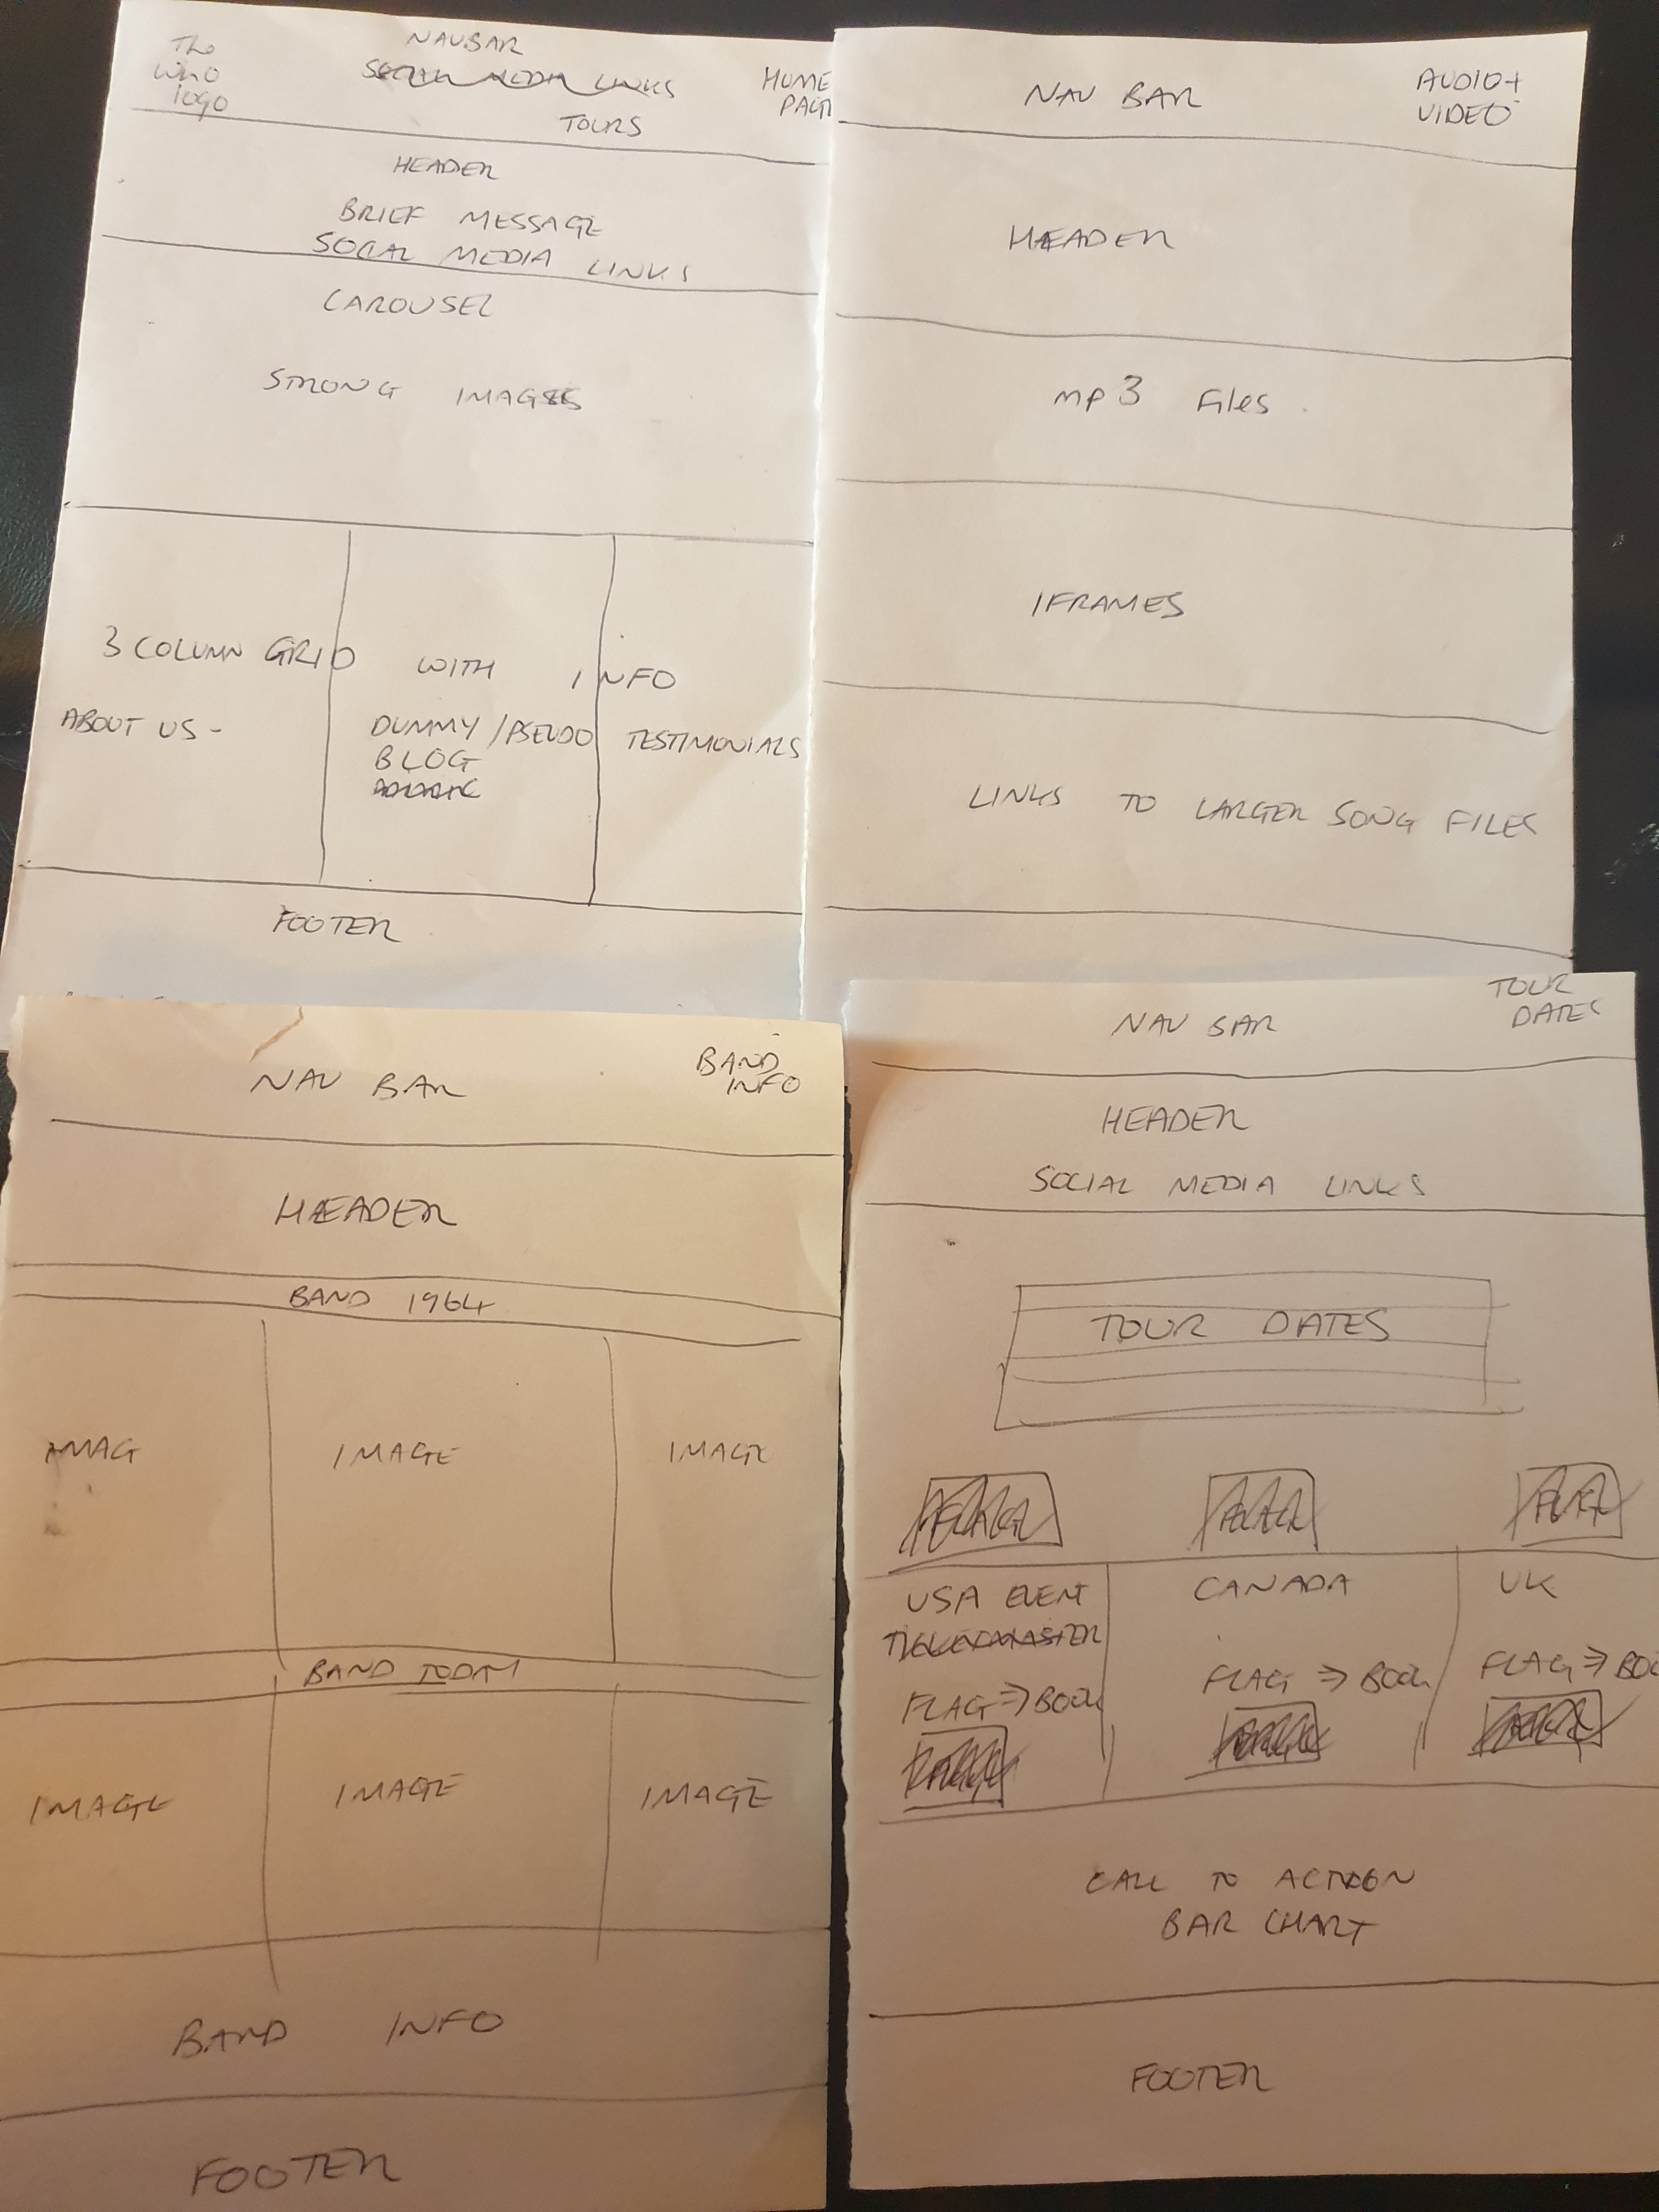 The
Who
logo
NAVBAR
SOCIAL MEDIA LINKS
HOME
PAGE
TOURS
HEADER
BRIEF MESSAGE
SOCIAL MEDIA LINKS
CAROUSEL
STRONG IMAGES
3 COLUMN GRID WITH INFO
ABOUT US -
DUMMY / PSEUDO
BLOG
TESTIMONIALS
FOOTER
NAV BAR
AUDIO +
VIDEO
HEADER
mp3 files
IFRAMES
LINKS TO LARGER SONG FILES
NAV BAR
BAND
INFO
HEADER
BAND 1964
IMAG IMAGE IMAGE
BAND TODAY
IMAGE IMAGE IMAGE
BAND INFO
FOOTER
NAV BAR
TOUR
DATES
HEADER
SOCIAL MEDIA LINKS
TOUR DATES
FLAG
USA EVENT
TICKETMASTER
FLAG ⇒ BOOK
CANADA
FLAG ⇒ BOOK
UK
FLAG ⇒ BOO
CALL TO ACTION
BAR CHART
FOOTER